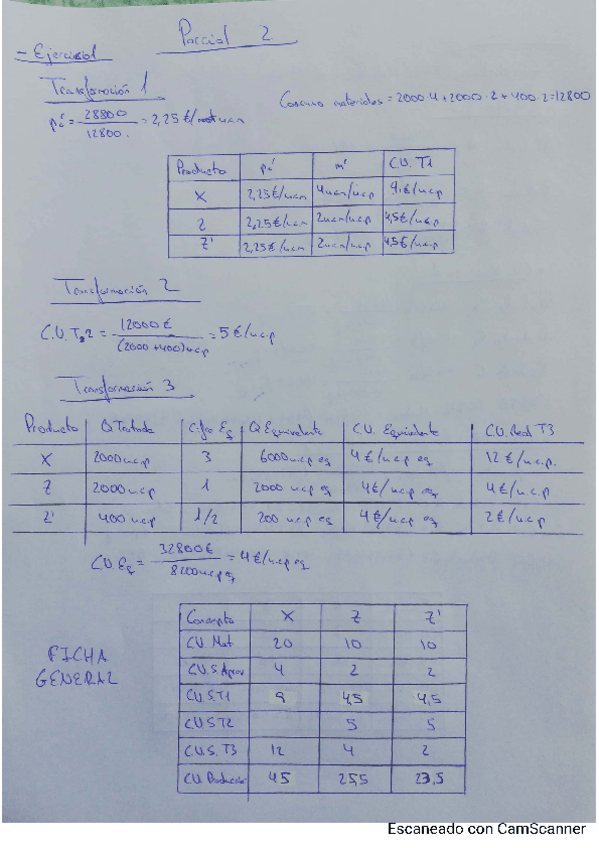 Parcial 2
- Ejercicio 1
Transformación 1
Consumo materiales = 2000·4 + 2000·2 + 400·2 = 12800
pć = 28800 / 12800 = 2,25 €/ucm
Producto pć ḿ C.U. T1
X 2,25€/ucm 4ucm/ucp 9.€/ucp
Z 2,25€/ucm 2ucm/ucp 4,5€/ucp
Z' 2,25€/ucm 2ucm/ucp 4,5€/ucp
Transformación 2
C.U.T.2 = 12000€ / (2000+400)ucp = 5€/ucp
Transformación 3
Producto Q Tratada Cifra Eq Q Equivalente C.U. Equivalente C.U. Real T3
X 2000ucp 3 6000ucp eq 4€/ucp eq 12€/ucp.
Z 2000ucp 1 2000 ucp eq 4€/ucp eq 4€/ucp
Z' 400 ucp 1/2 200 ucp eq 4€/ucp eq 2€/ucp
C.U.Eq = 32800€ / 8200ucp eq = 4€/ucp eq
FICHA
GENERAL
Concepto X Z Z'
C.U. Mat 20 10 10
C.U.S. Aprov 4 2 2
C.U.S.T1 9 4,5 4,5
C.U.S T2 5 5
C.U.S. T3 12 4 2
C.U. Producción 45 25,5 23,5
Escaneado con CamScanner